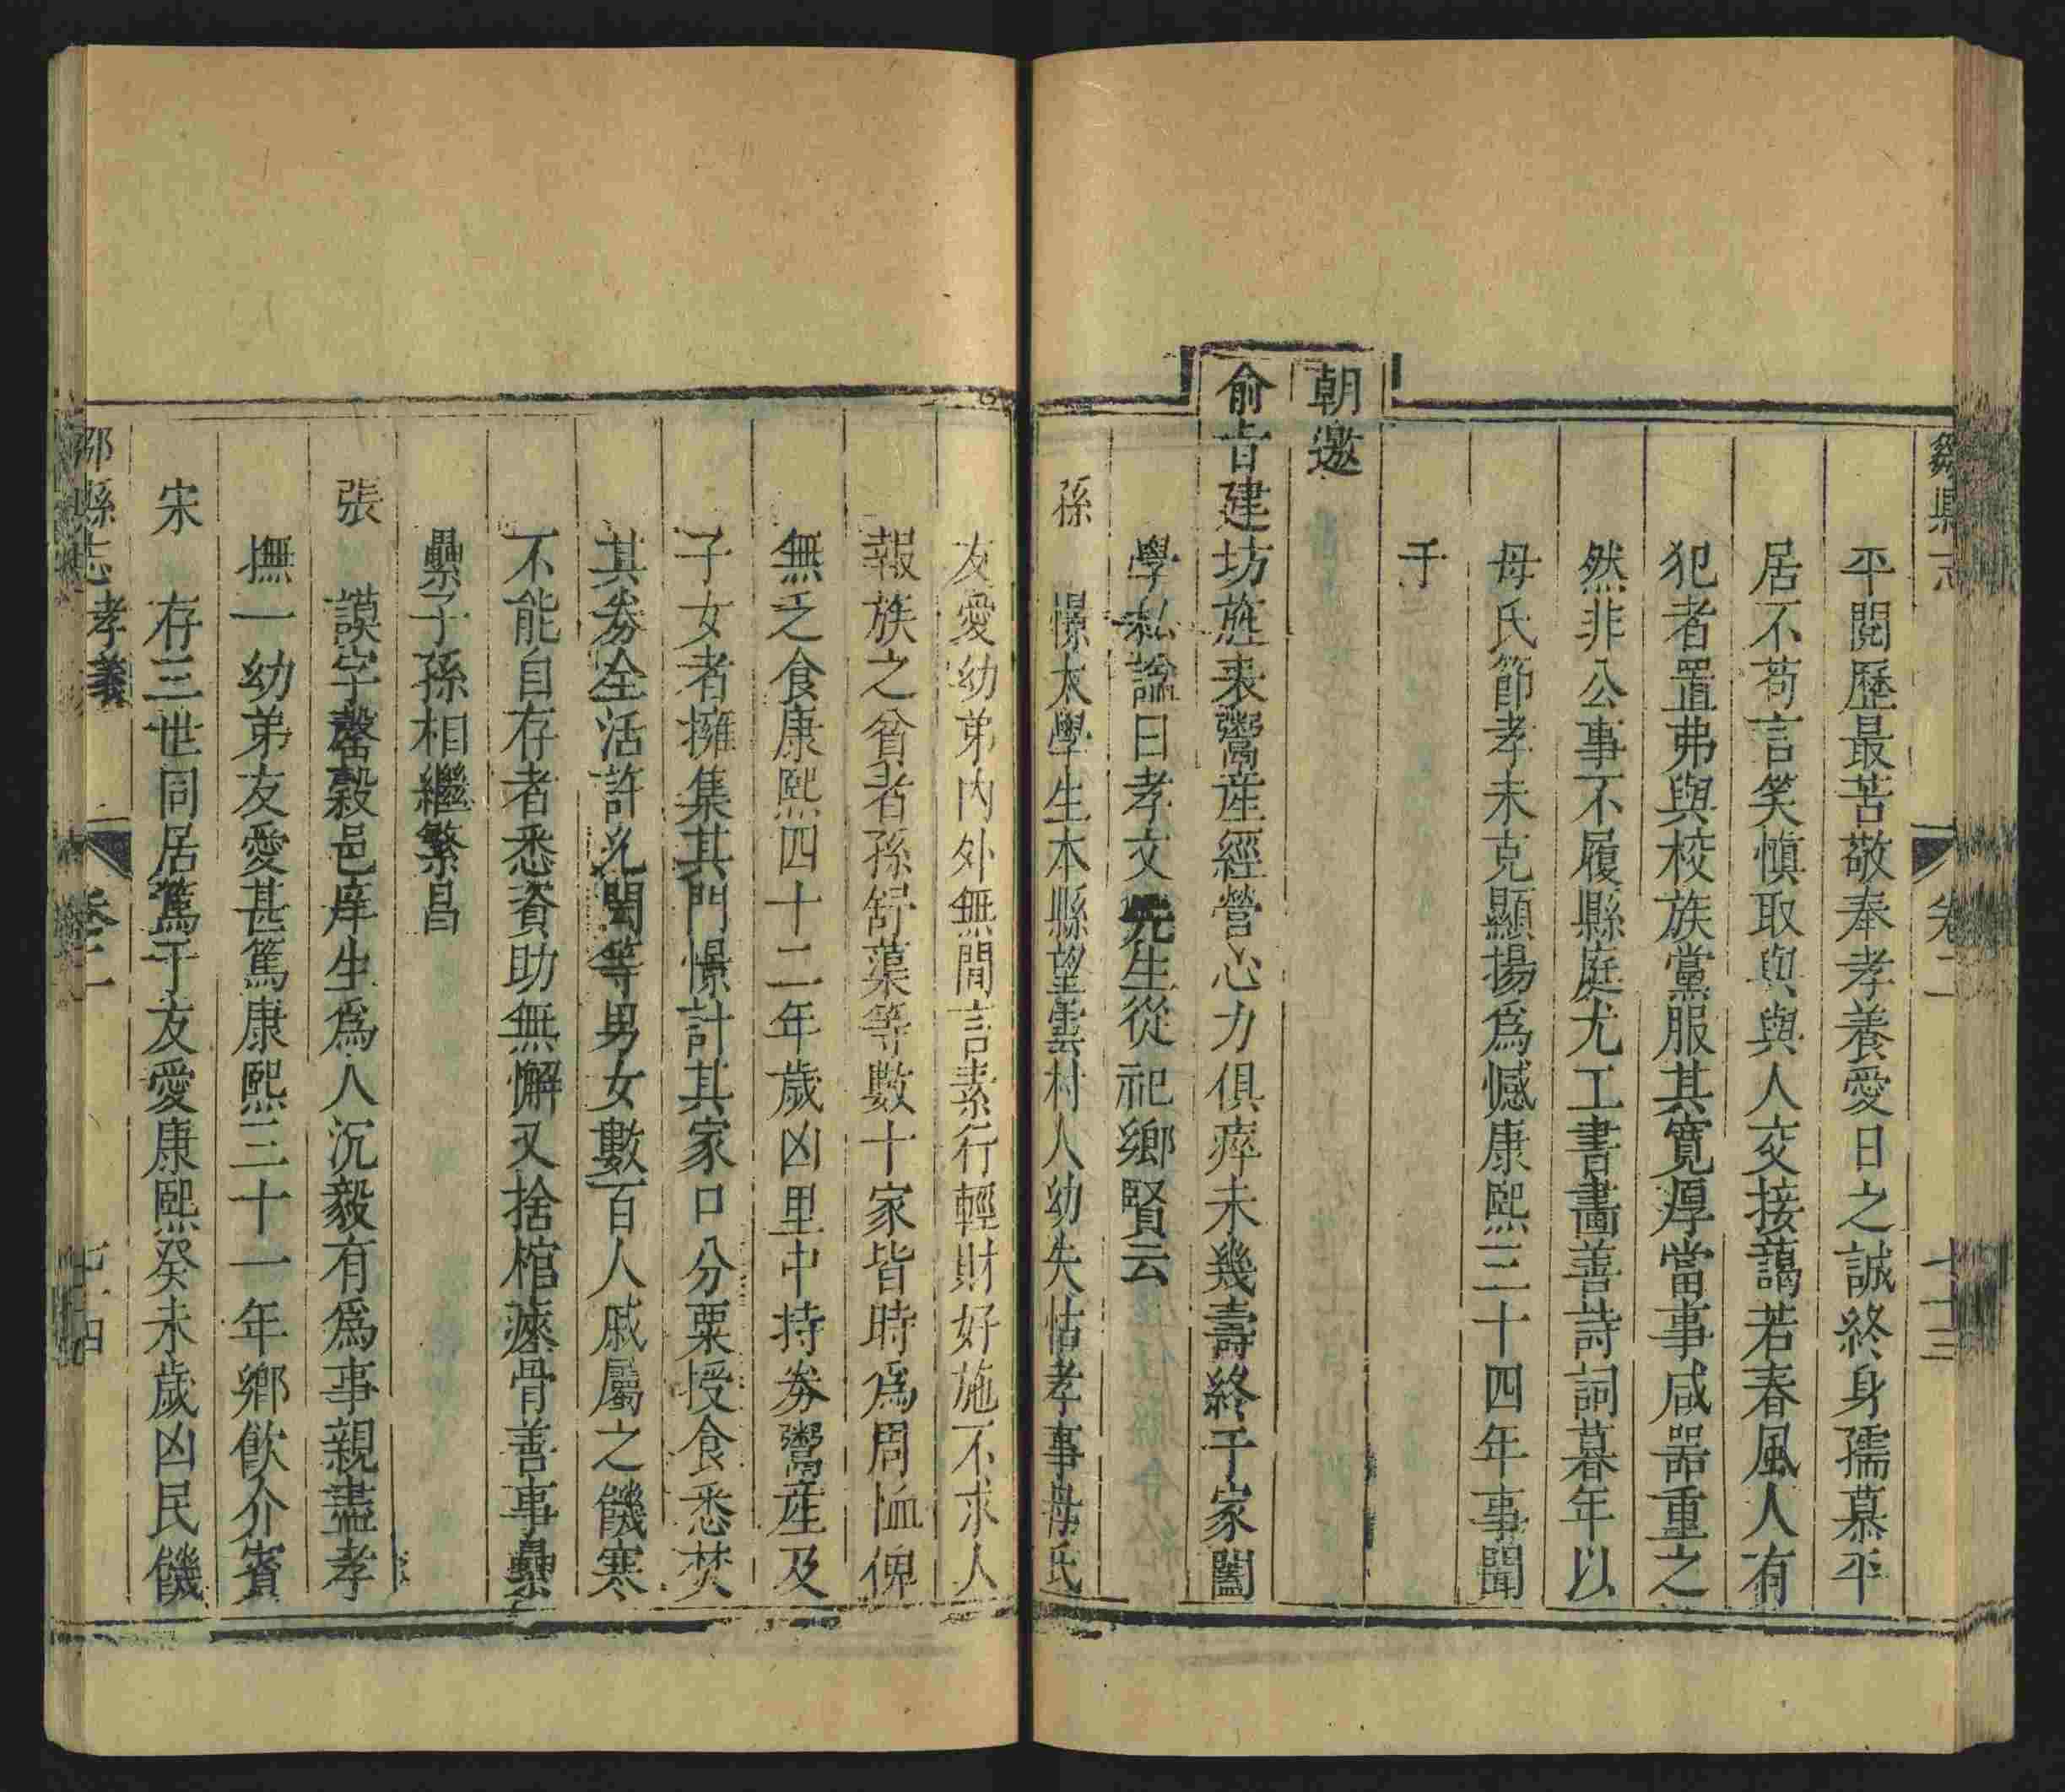 鄒縣志 卷二 七十三
平閱歷最苦敬奉孝養愛日之誠終身孺慕平
居不苟言笑慎取與與人交接藹若春風人有
犯者置弗與校族黨服其寬厚當事咸器重之
然非公事不履縣庭尤工書畵善詩詞暮年以
母氏節孝未克顯揚爲憾康熙三十四年事聞
于
朝邀
俞旨建坊旌表鬻産經營心力俱瘁未幾壽終于家闔
學私諡曰孝文先生從祀鄉賢云
孫 憬太學生本縣望雲村人幼失怙孝事母氏
友愛幼弟内外無間言素行輕財好施不求人
報族之貧者孫舒蕖等數十家皆時爲周恤俾
無乏食康熙四十二年歲凶里中持劵鬻産及
子女者擁集其門憬計其家口分粟授食悉焚
其劵全活許允閣等男女數百人戚屬之饑寒
不能自存者悉資助無懈又捨棺瘞骨善事纍
纍子孫相繼繁昌
張 謨字罄穀邑庠生爲人沉毅有爲事親盡孝
撫一幼弟友愛甚篤康熙三十一年鄉飲介賓
宋 存三世同居篤于友愛康熙癸未歲凶民饑
鄒縣志 孝義 卷二 七十四